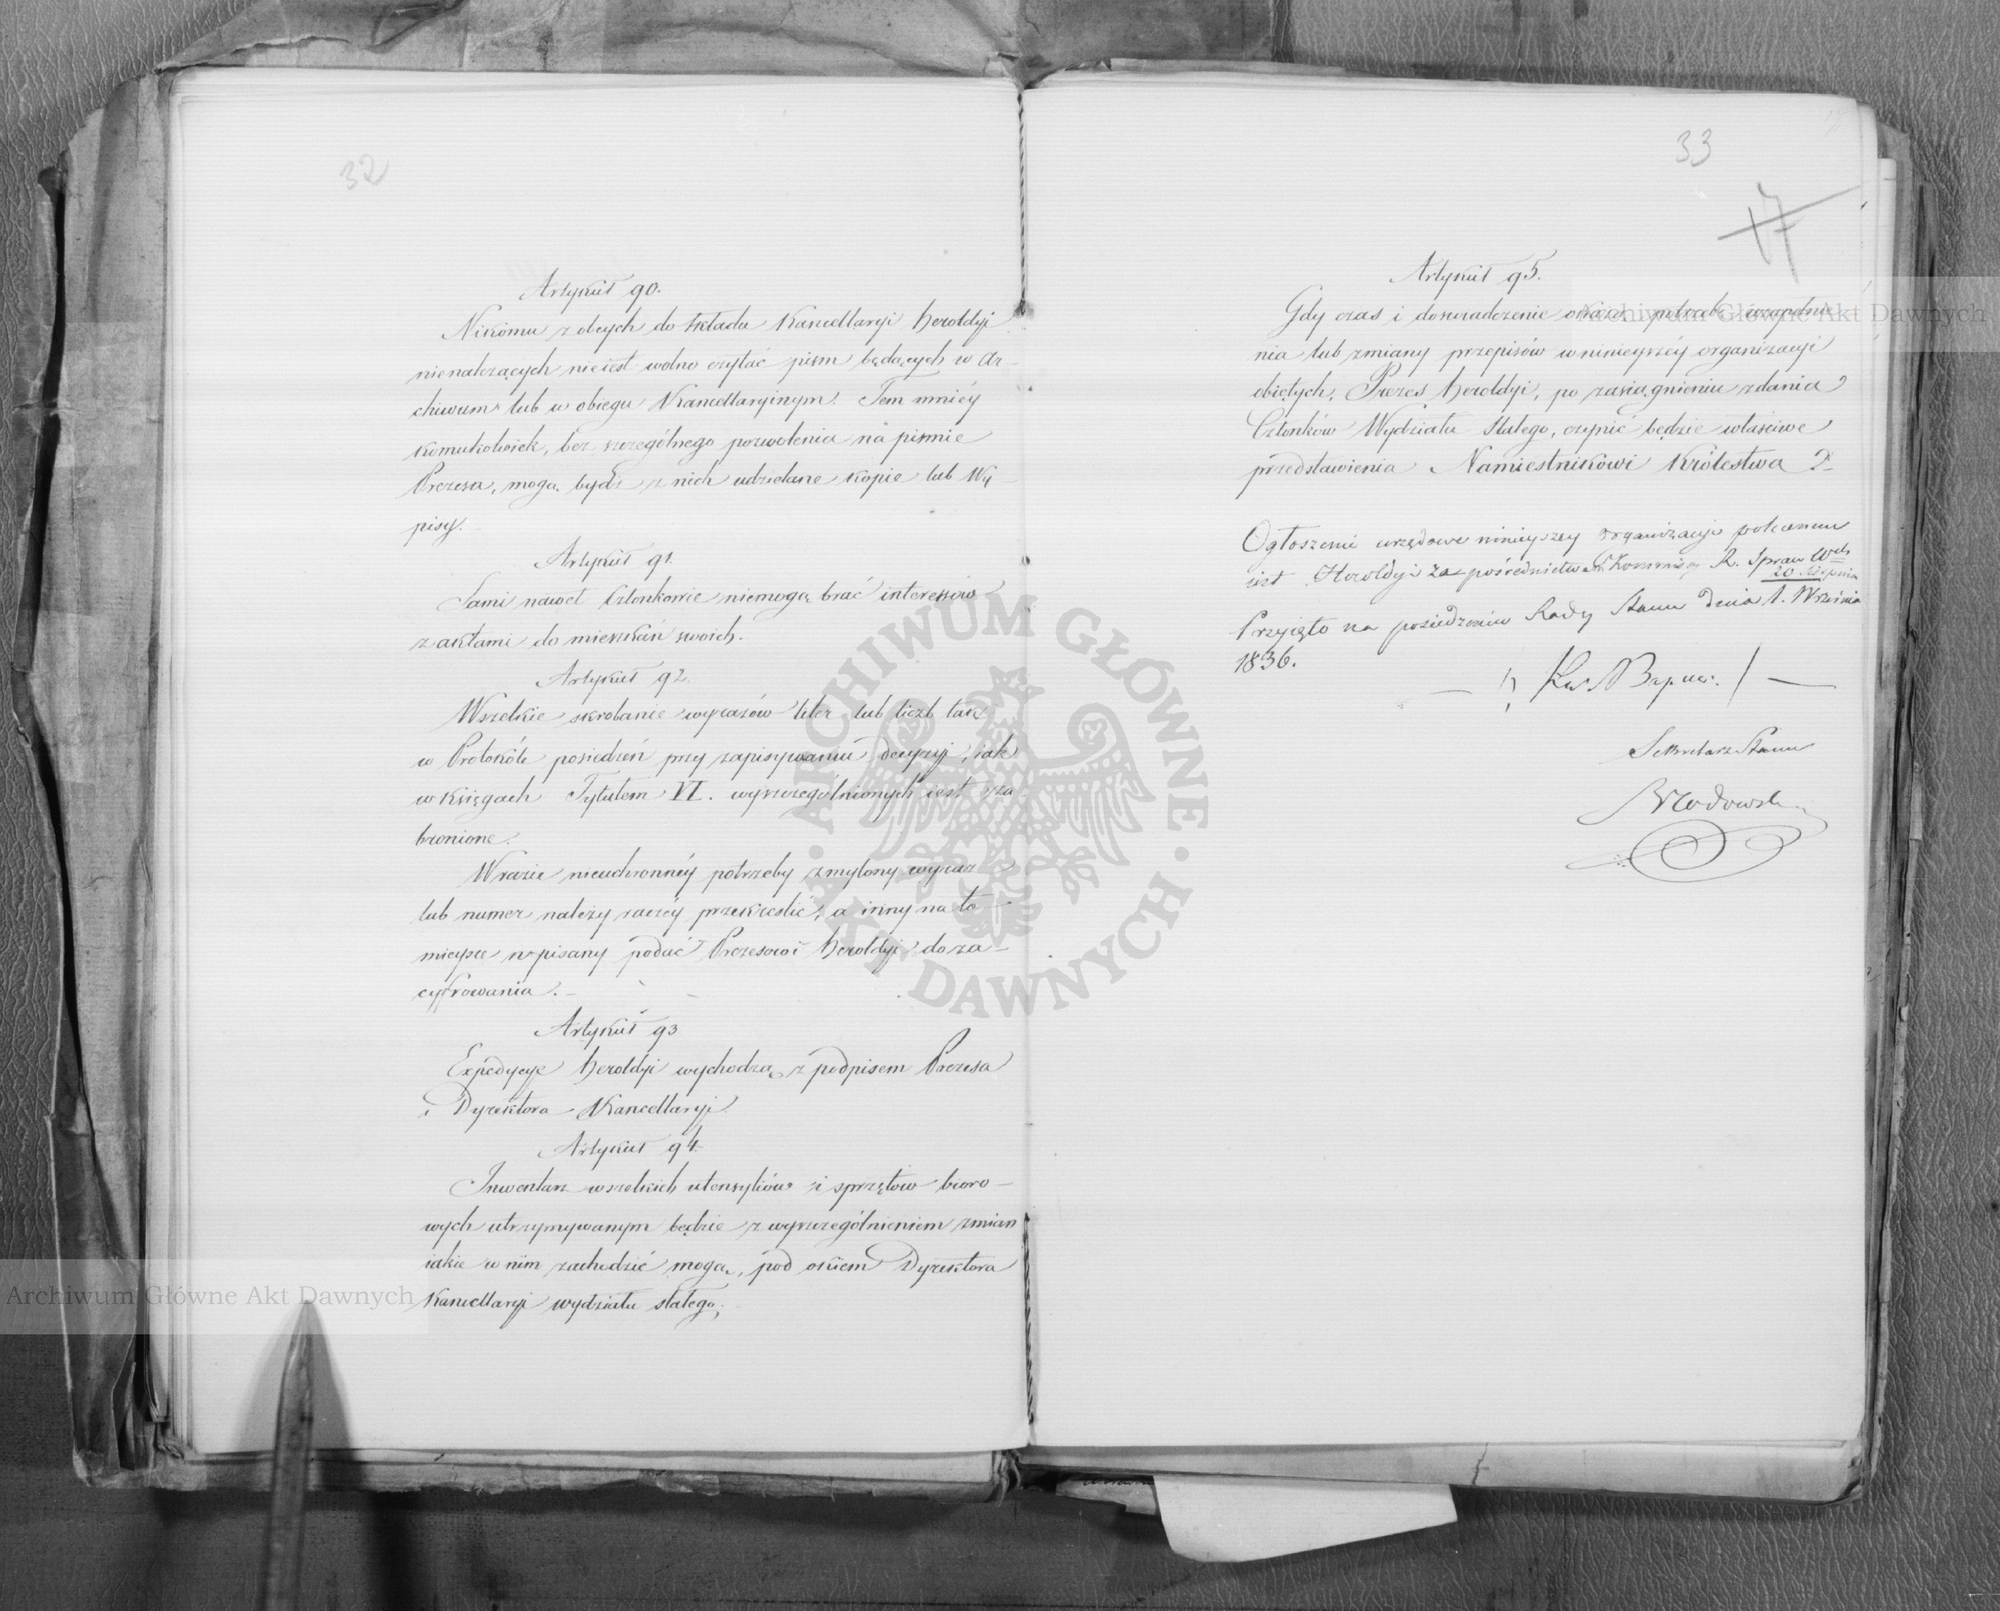 32
Artykuł 90.
Nikomu z obcych do składu Kancellaryi Heroldyi
nienależących nieiest wolno czytać pism będących w Ar-
chiwum lub w obiegu Kancellaryinym. Tem mniéy
komukolwiek, bez szczególnego pozwolenia na piśmie
Prezesa, mogą bydź z nich udzielane kopie lub Wy-
pisy.
Artykuł 91.
Sami nawet Członkowie niemogą brać interessów
z aktami do mieszkań swoich.
Artykuł 92.
Wszelkie skrobanie wyrazów liter lub liczb tak
w Protokóle posiedzeń przy zapisywaniu decyzyi, iak
w Księgach Tytułem VI. wyszczególnionych iest za-
bronione.
W razie nieuchronnéy potrzeby zmylony wyraz
lub numer należy raczéy przekreślić, a inny na to
mieysce wpisany podać Prezesowi Heroldyi do za-
cyfrowania.
Artykuł 93
Expedycye Heroldyi wychodzą z podpisem Prezesa
i Dyrektora Kancellaryi.
Artykuł 94.
Inwentarz wszelkich utensyliów i sprzętów bioro-
wych utrzymywanym będzie z wyszczególnieniem zmian
iakie w nim zachodzić mogą, pod okiem Dyrektora
Kancellaryi wydziału stałego.
33
17
Artykuł 95.
Gdy czas i doswiadczenie okaże potrzebę uzupełnie-
nia lub zmiany przepisów w ninieyszéy organizacyi
obiętych, Prezes Heroldyi, po zasiągnieniu zdania
Członków Wydziału Stałego, czynić będzie właściwe
przedstawienia Namiestnikowi Królestwa
Ogłoszenie urzędowe ninieyszey organizacyi polecamy
iest Heroldyi za pośrednictwem Kommissyi R. Spraw Wch
20 Sierpnia
Przyięto na posiedzeniu Rady Stanu dnia 1. Września
1836.
Sekretarz Stanu
Archiwum Główne Akt Dawnych
Archiwum Główne Akt Dawnych
ARCHIWUM GŁÓWNE AKT DAWNYCH